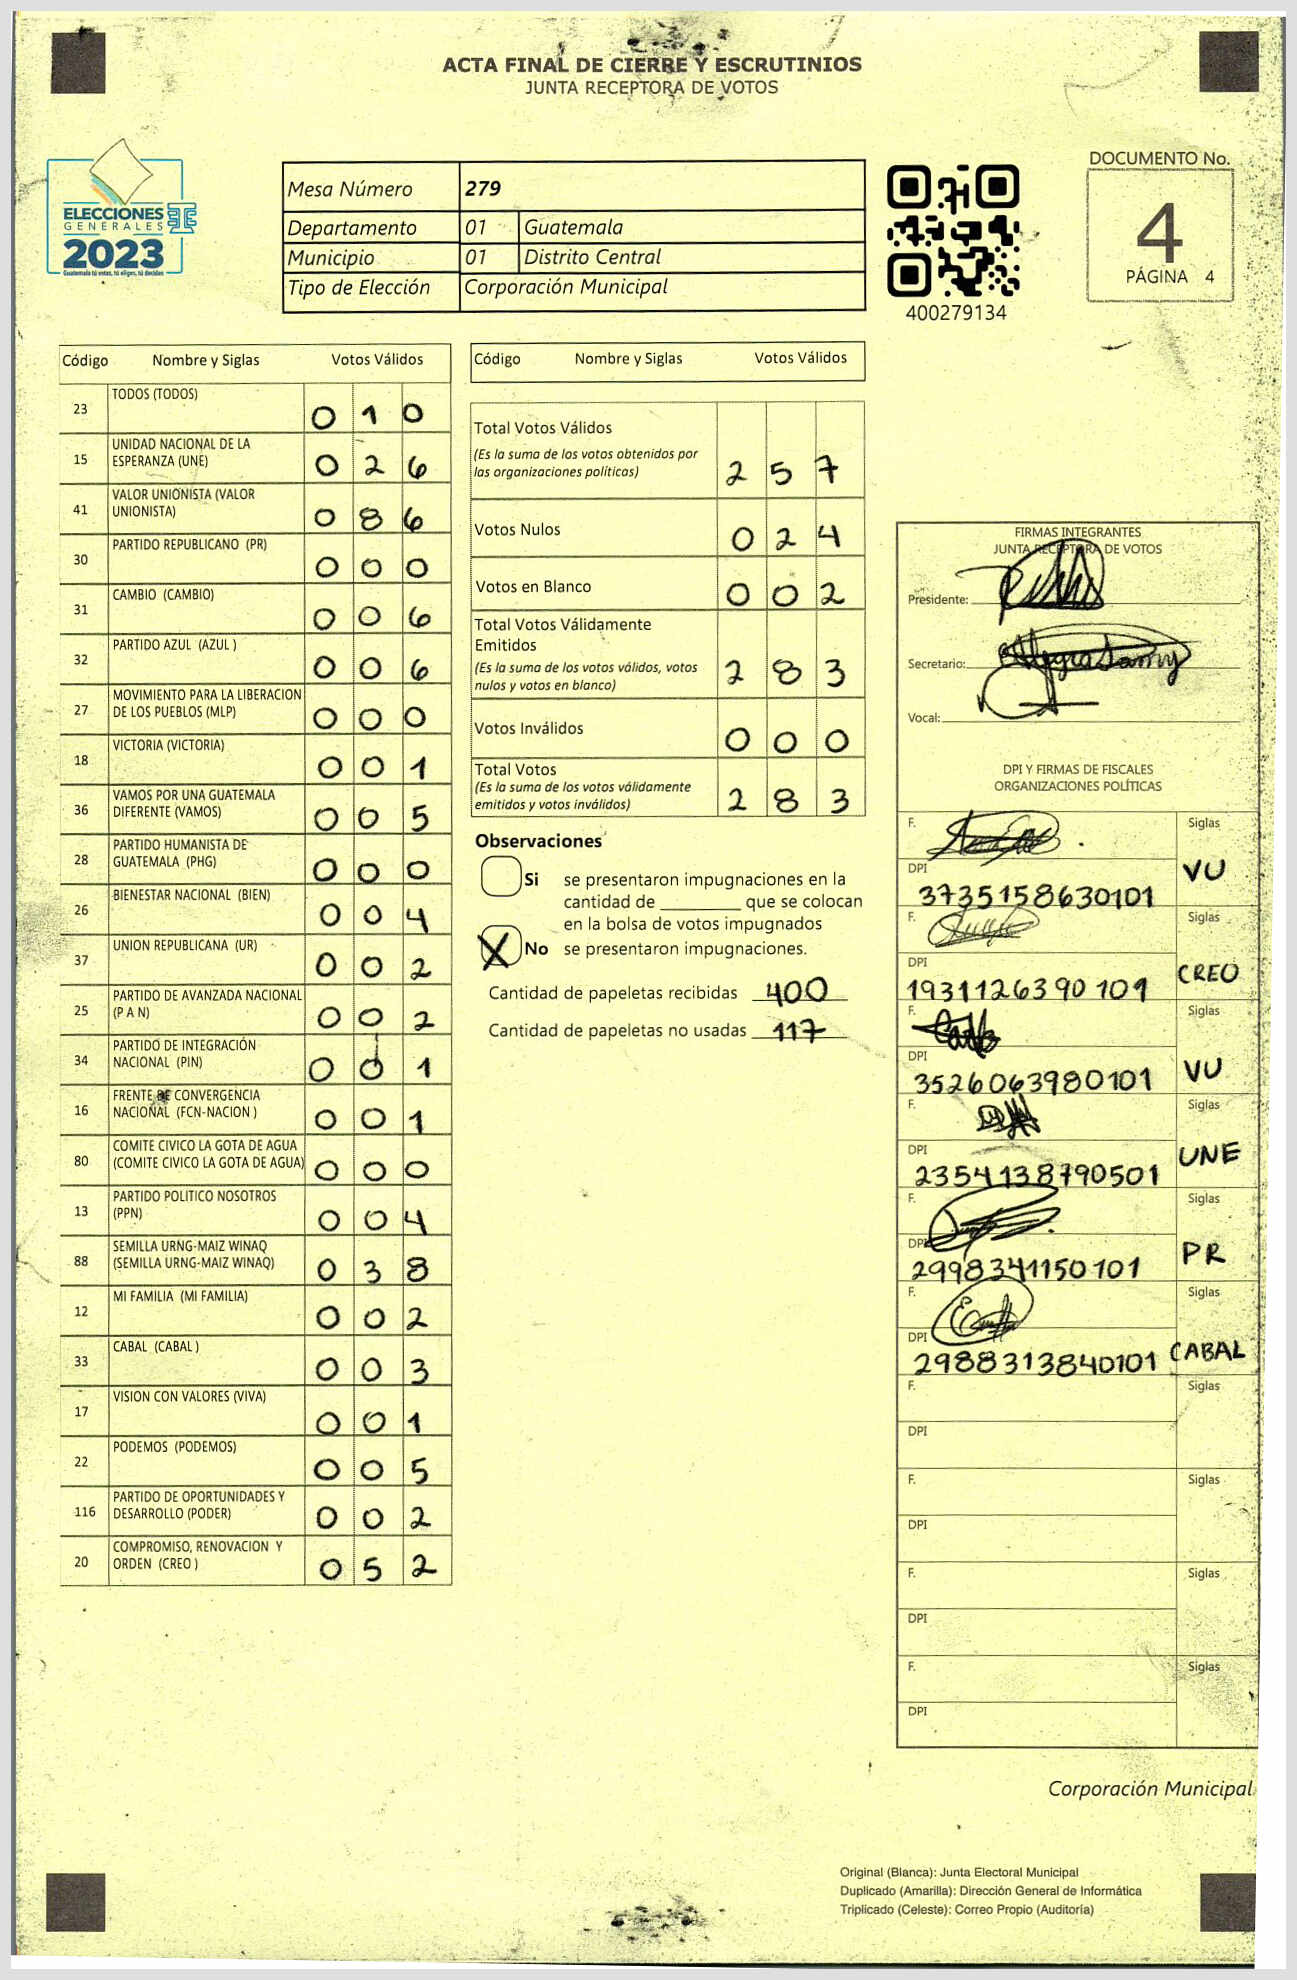 ACTA FINAL DE CIERRE Y ESCRUTINIOS
JUNTA RECEPTORA DE VOTOS
ELECCIONES
GENERALES
2023
Guatemala tú votas, tú eliges, tú decides
Mesa Número 279
Departamento 01 Guatemala
Municipio 01 Distrito Central
Tipo de Elección Corporación Municipal
400279134
DOCUMENTO No.
4
PÁGINA 4
Código Nombre y Siglas Votos Válidos
23 TODOS (TODOS) 0 1 0
15 UNIDAD NACIONAL DE LA
ESPERANZA (UNE) 0 2 6
41 VALOR UNIONISTA (VALOR
UNIONISTA) 0 8 6
30 PARTIDO REPUBLICANO (PR) 0 0 0
31 CAMBIO (CAMBIO) 0 0 6
32 PARTIDO AZUL (AZUL ) 0 0 6
27 MOVIMIENTO PARA LA LIBERACION
DE LOS PUEBLOS (MLP) 0 0 0
18 VICTORIA (VICTORIA) 0 0 1
36 VAMOS POR UNA GUATEMALA
DIFERENTE (VAMOS) 0 0 5
28 PARTIDO HUMANISTA DE
GUATEMALA (PHG) 0 0 0
26 BIENESTAR NACIONAL (BIEN) 0 0 4
37 UNION REPUBLICANA (UR) 0 0 2
25 PARTIDO DE AVANZADA NACIONAL
(P A N) 0 0 2
34 PARTIDO DE INTEGRACIÓN
NACIONAL (PIN) 0 0 1
16 FRENTE DE CONVERGENCIA
NACIONAL (FCN-NACION ) 0 0 1
80 COMITE CIVICO LA GOTA DE AGUA
(COMITE CIVICO LA GOTA DE AGUA) 0 0 0
13 PARTIDO POLITICO NOSOTROS
(PPN) 0 0 4
88 SEMILLA URNG-MAIZ WINAQ
(SEMILLA URNG-MAIZ WINAQ) 0 3 8
12 MI FAMILIA (MI FAMILIA) 0 0 2
33 CABAL (CABAL ) 0 0 3
17 VISION CON VALORES (VIVA) 0 0 1
22 PODEMOS (PODEMOS) 0 0 5
116 PARTIDO DE OPORTUNIDADES Y
DESARROLLO (PODER) 0 0 2
20 COMPROMISO, RENOVACION Y
ORDEN (CREO ) 0 5 2
Código Nombre y Siglas Votos Válidos
Total Votos Válidos
(Es la suma de los votos obtenidos por
las organizaciones políticas) 2 5 7
Votos Nulos 0 2 4
Votos en Blanco 0 0 2
Total Votos Válidamente
Emitidos
(Es la suma de los votos válidos, votos
nulos y votos en blanco) 2 8 3
Votos Inválidos 0 0 0
Total Votos
(Es la suma de los votos válidamente
emitidos y votos inválidos) 2 8 3
Observaciones
Si se presentaron impugnaciones en la
cantidad de ________ que se colocan
en la bolsa de votos impugnados
X No se presentaron impugnaciones.
Cantidad de papeletas recibidas 400
Cantidad de papeletas no usadas 117
FIRMAS INTEGRANTES
JUNTA RECEPTORA DE VOTOS
Presidente:
Secretario:
Vocal:
DPI Y FIRMAS DE FISCALES
ORGANIZACIONES POLÍTICAS
F. Siglas
DPI VU
3735158630101
F. Siglas
DPI CREO
1931126390101
F. Siglas
DPI VU
3526063980101
F. Siglas
DPI UNE
2354138790501
F. Siglas
DPI PR
2998341150101
F. Siglas
DPI CABAL
2988313840101
F. Siglas
DPI
F. Siglas
DPI
F. Siglas
DPI
F. Siglas
DPI
Corporación Municipal
Original (Blanca): Junta Electoral Municipal
Duplicado (Amarilla): Dirección General de Informática
Triplicado (Celeste): Correo Propio (Auditoría)